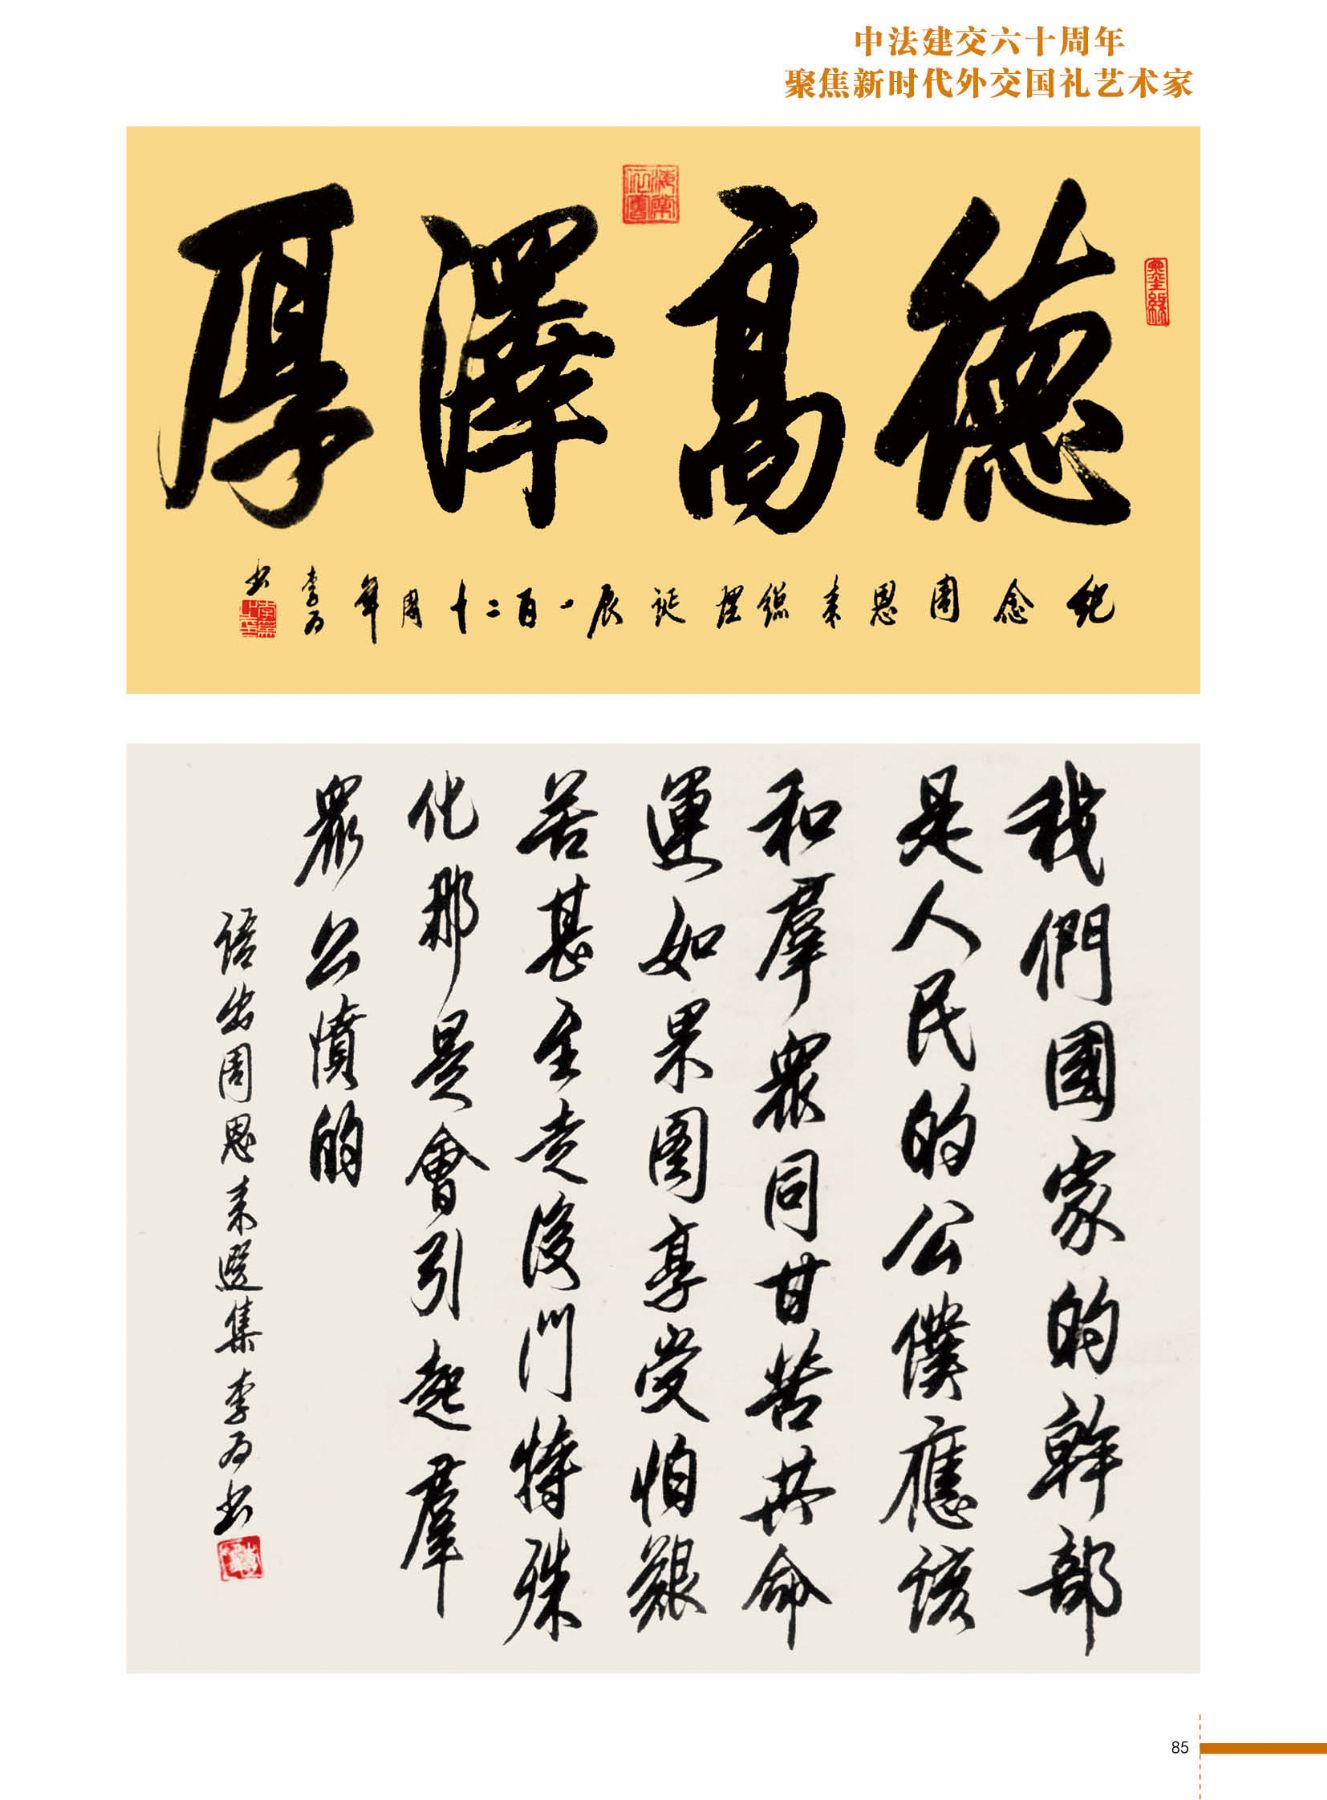 中法建交六十周年
聚焦新时代外交国礼艺术家
德高澤厚
紀念周恩来總理誕辰一百二十周年
李為
书
我們國家的幹部
是人民的公僕應該
和羣衆同甘苦共命
運如果图享受怕艱
苦甚至走後門特殊
化那是會引起羣
衆公憤的
語出周恩来選集李為书
85